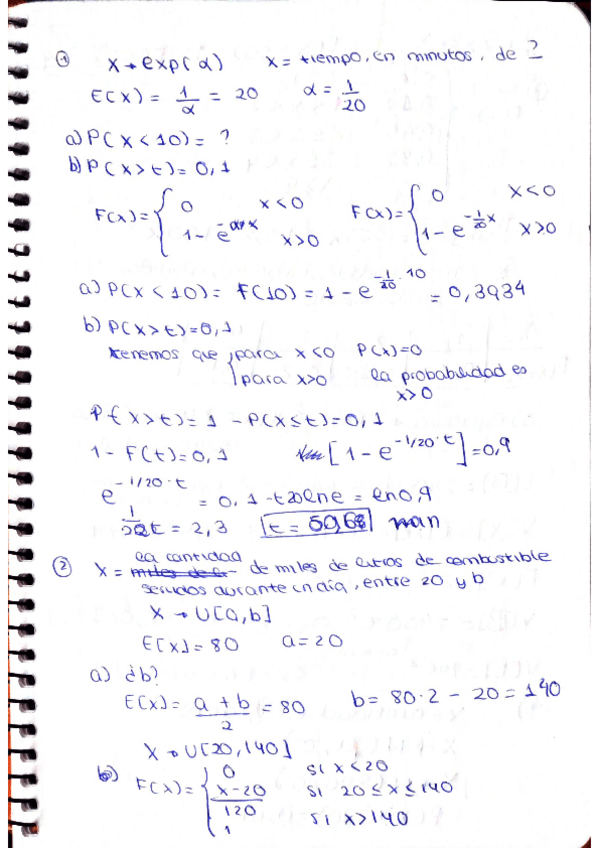 ① X → exp(α)    X = tiempo, en minutos, de ?
E(X) = 1/α = 20    α = 1/20
a) P(X < 10) = ?
b) P(X > t) = 0,1
F(x) = { 0    x < 0    F(x) = { 0    x < 0
1 - e^-αx    x > 0    1 - e^-1/20 x    x > 0
a) P(X < 10) = F(10) = 1 - e^-1/20 · 10 = 0,3934
b) P(X > t) = 0,1
tenemos que { para x < 0    P(x) = 0
para x > 0    la probabilidad es
x > 0
P(X > t) = 1 - P(X ≤ t) = 0,1
1 - F(t) = 0,1    [1 - e^-1/20 · t] = 0,9
e^-1/20 · t = 0,1 - t20 ln e = ln 0,9
1/20 t = 2,3    t =
② X = la cantidad de miles de litros de combustible
servidos durante un día, entre 20 y b
X → U[a, b]
E[X] = 80    a = 20
a) ¿b?
E[X] = a + b / 2 = 80    b = 80 · 2 - 20 = 140
X → U[20, 140]
b) F(x) = { 0    si x < 20
x - 20 / 120    si 20 ≤ x ≤ 140
1    si x > 140